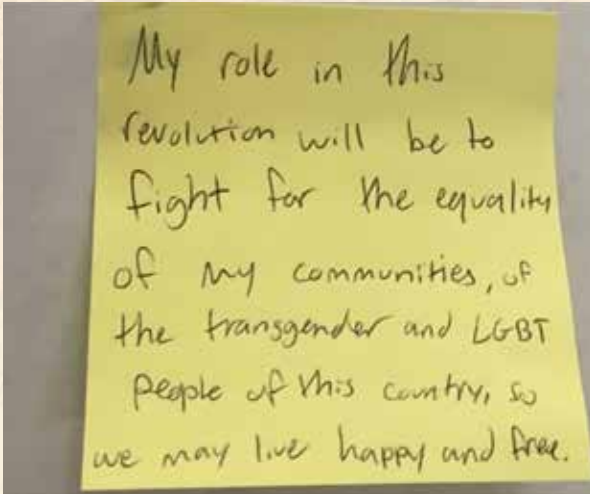 My role in this
revolution will be to
fight for the equality
of my communities, of
the transgender and LGBT
people of this country, so
we may live happy and free.